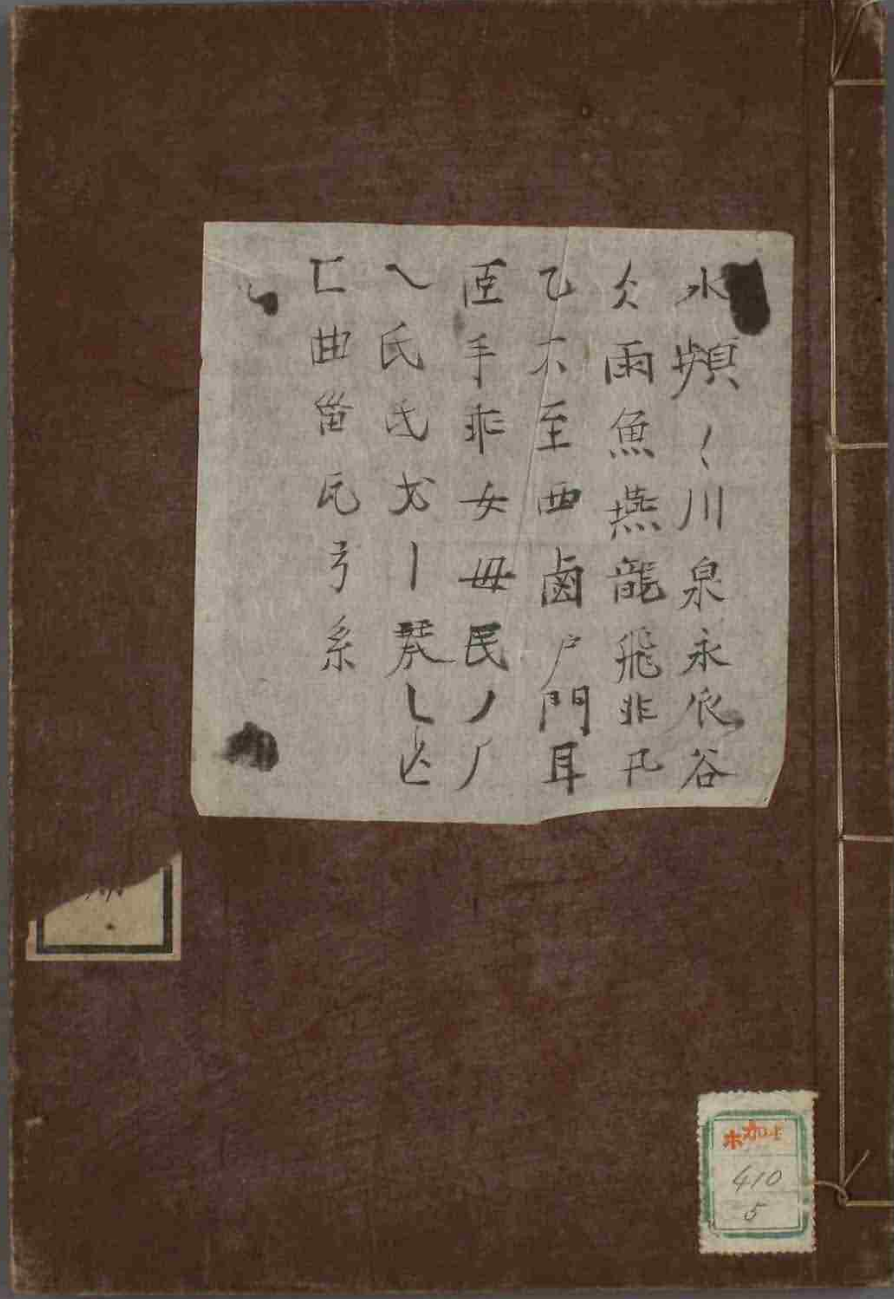 水頻𡿨川泉永𠂢谷
仌雨魚燕龍飛非卂
乙不至西鹵戶門耳
𦣞手𠦬女毋民丿𠂆
乀氏氐戈亅琴乚亾
匸曲甾瓦弓系
410
5